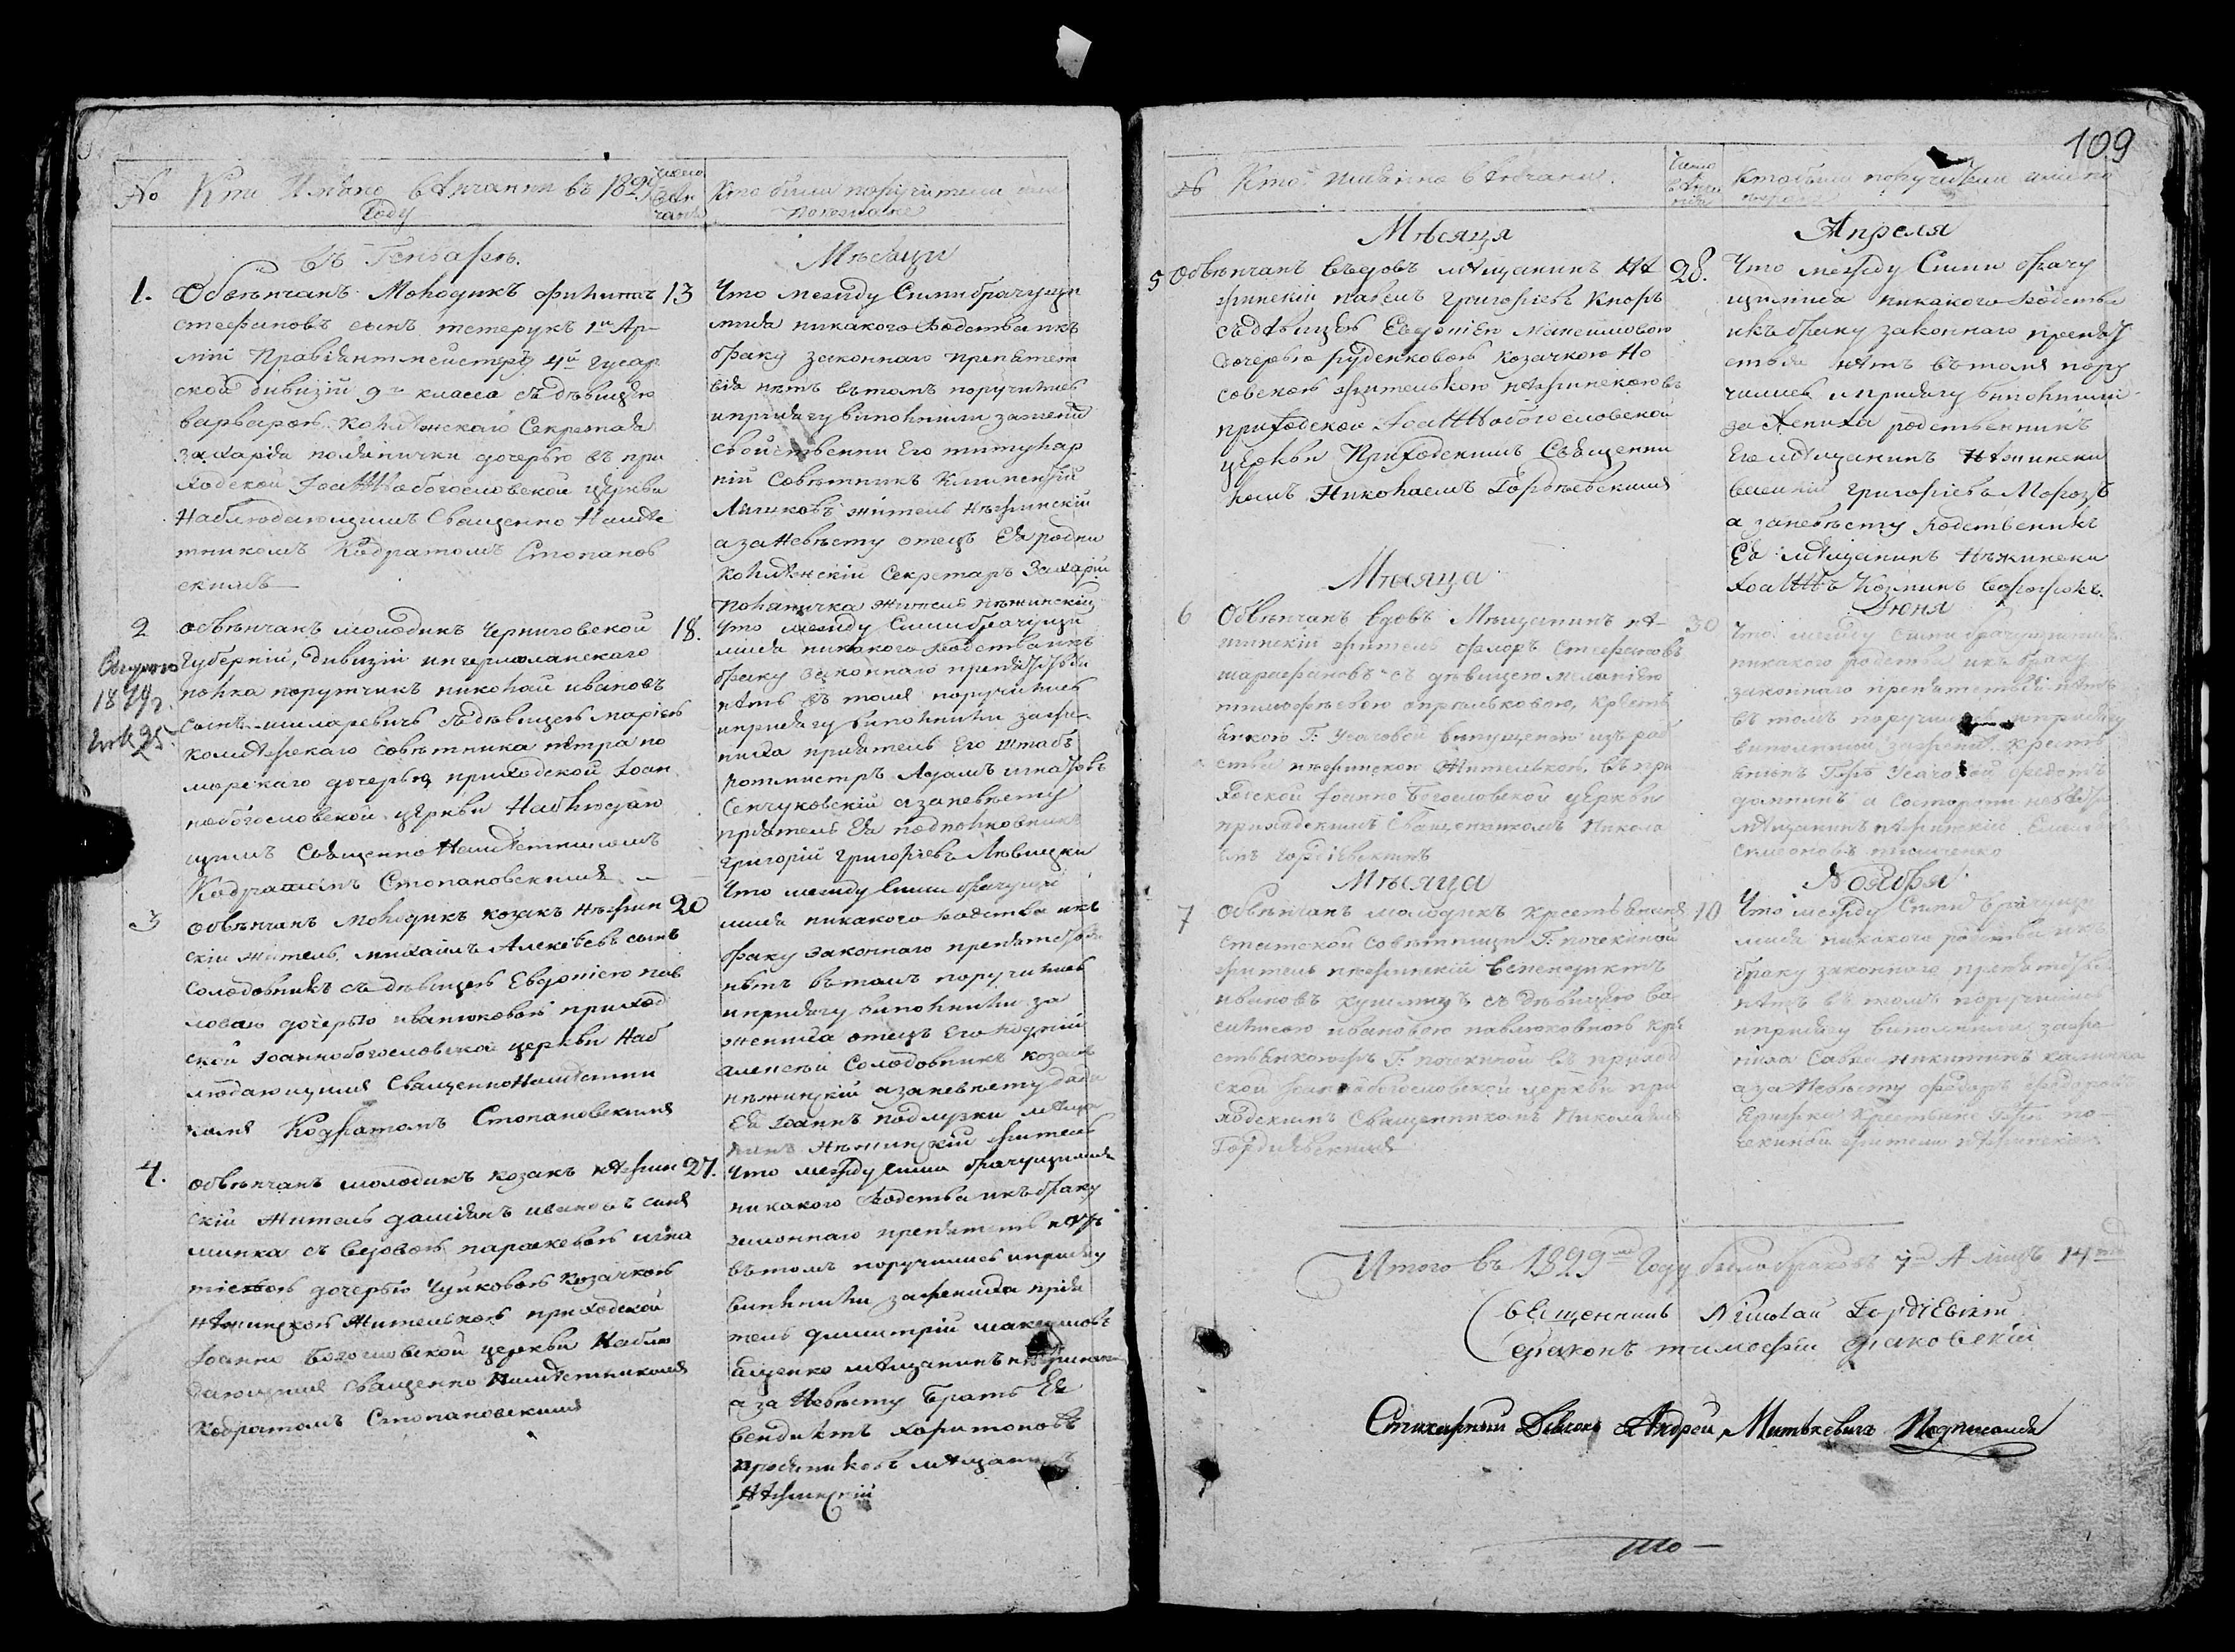 109
No Кто Имяно вѣнчанни въ 1829
Году
число вѣнчания
Кто были поручители или
поезжане
въ Генваръ.
Мѣсяци
1. Обвѣнчанъ Молодикъ филипъ 13
стефановъ сынъ тетерукъ 1й Ар-
міи Правіянтмейстеръ 4й гусар
ской дивизіи 9го класса съ дѣвицею
варварою колѣжскаго Секретаря
захаріа поляпички дочерью въ при
ходской Іоаннобогословской церкви
Наблюдающимъ Священно Намѣс
тникомъ Кодратомъ Стопанов
скимъ
Что между Симибрачущи
мися никакого родства икъ
браку законнаго препятст
вія нѣтъ вътомъ поручились
иприсягу виполнили зажениха
свойственни Его титуляр
ній Совѣтникъ
житель нѣжинскій
азаНевѣсту отецъ Ея родни
колѣжскій Секретаръ Захарій
поляпичка житель нѣжинскій
2 обвѣнчанъ молодикъ Черниговской 18.
Губерніи, дивизіи ингерманланскаго
полка порутчикъ николай ивановъ
сынъ шиларевичъ съдѣвицею маріею
колѣжскаго совѣтника петра по
морскаго дочерью, приходской Іоан
нобогословской церкви Наблюдаю
щимъ СвященноНамѣстникомъ
Кодратомъ Стопановскимъ
1879г.
Что между Симибрачущи
мися никакого родства икъ
браку законнаго препятства
нѣтъ въ томъ поручились
иприсягу виполнили зажи-
ниха приятель Его штабъ
ротмистръ Адамъ игнатовъ
Сенчуковскій азаневѣсту
приятель Ея подполковникъ
григорій григоріевъ Лѣвицки
3 обвѣнчанъ Молодикъ козакъ Нѣжин 20
скій житель михаилъ Алексѣевъ сынъ
Солодовникъ съдѣвицею Евдокіею пав
ловою дочерью иванюковою приход
ской іоаннобогословской церкви Наб
людающимъ СвященноНамѣстни
комъ Кодратомъ Стопановскимъ
Что между Симибрачущи
мися никакого родства икъ
браку законнаго препятства
нѣтъ вътомъ поручились
иприсягу виполнили за
жениха отецъ Его родній
алексѣй Солодовникъ козакъ
нѣжинскій азаневѣсту дядя
Ея іоаннъ подлузки мѣща
нинъ нѣжинскій житель
4. обвѣнчанъ молодикъ козакъ нѣжин 27.
скій житель даміянъ ивановъ синъ
минка съ вдовою параскевою игна
тіевою дочерью Чуйковою козачкою
нѣжинскою жителькою приходской
Іоанно Богословской церкви Наблю
дающимъ Священно Намѣстникомъ
Кодратомъ Стопановскимъ
Что между сими брачущимися
никакого родства икъ браку
законнаго препятств нѣтъ
вътомъ поручились иприсягу
виполнили зажениха прія
тель димитрій максимовъ
мѣщанинъ нѣжински
а за Невѣсту братъ Ея
вендиктъ харитоновъ
мѣщанинъ
нѣжинскій
№ Кто Имянно вѣнчани.
Число вѣнчания
Кто были поручители имено
Мѣсяця Апреля
5 Обвѣнчанъ вьдовъ мѣщанинъ нѣ 28.
жинскій павелъ григоріевъ Кноръ
съдѣвицею Евдокіею Максимовою
дочерью руденковою козачкою Но
совскою жителькою нѣжинскою въ
приходской Іоаннобогословской
церкви Приходскимъ Священни
комъ Николаемъ Гордѣевскимъ
Что между Сими брачу
щимися никакого родства
икъ браку законнаго препят
ствія нѣтъ вътомъ пору
чились иприсягу виполнили
за жениха родственникъ
Его мѣщанинъ нѣжински
василій григоріевъ Морозъ
а заневѣсту родственикъ
Ея мѣщанинъ Нѣжински
Іоаннъ Козминъ
Мѣсяца Июня
6 Обвѣнчанъ вдовъ Мѣщанинъ нѣ- 30
жинскій житель фролъ Стефановъ
шарафановъ съ дѣвицею меланіею
тимофѣевою Крестья
нкою Г. Усаговой випущеною изъ раб
ства нѣжинскою жителькою, въ при
ходской Іоанно Богословской церкви
приходскимъ Священникомъ Никола
емъ Гордіевскимъ
Что между сими брачущимися
никакого родства икъ браку
законнаго препятствія нѣтъ
въ томъ поручились иприсягу
виполнили, зажених. Кресть
янинъ Гжи Усаговой федотъ
доминъ а Состороны невѣсты
мѣщанинъ нѣжинскій
Симеоновъ
Мѣсяца Ноября
7 Обвѣнчанъ молодикъ Крестьянинъ 10
Статской Совѣтници Г. почекиной
житель нѣжинскій венендиктъ
ивановъ съ дѣвицею ва
силисою ивановою павлюковною Кре
стьянкою Г. почекиной въ приход
ской Іоаннобогословской церкви при
ходскимъ Священникомъ Николаемъ
Гордіевскимъ
Что между Сими брачущи
мися никакого родства икъ
браку законнаго препятства
нѣтъ въ томъ поручились
иприсягу виполнили, заже
ниха Савва никитинъ калинка
азаНевѣсту федоръ федоровъ
Крестьяне Гжи по-
чекиной жители нѣжинскіе
Итого въ 1829мъ Году было браковъ 7 А лицъ 14
Священникъ Николай Гордіевскій
Діаконъ тимофій Діаковскій
Стихарний Дьячокъ Андрей Митькевичъ Подписался